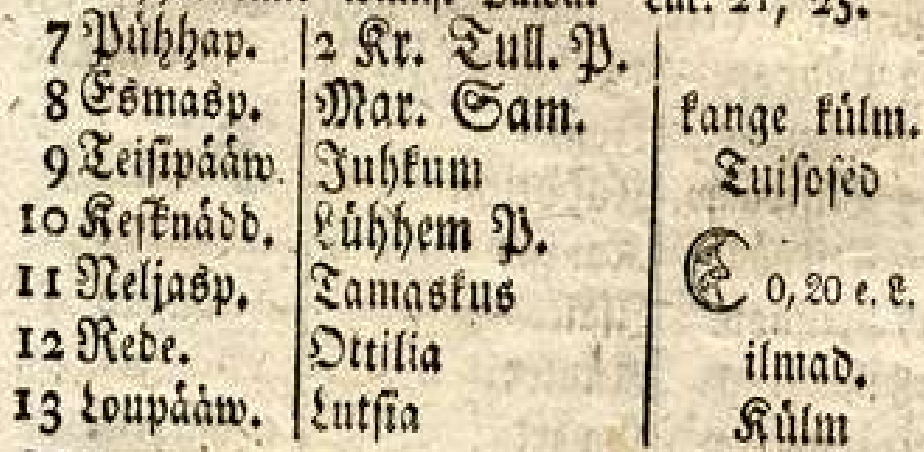 Luk. 21, 25.
7 Pühhap. 2 Kr. Tull. P.
8 Esmasp. Mar. Sam. kange külm.
9 Teisipääw. Juhkum Tuisosed
10 Kesknädd. Lühhem P.
11 Neljasp. Tamaskus 0,20 e. L.
12 Rede. Ottilia ilmad.
13 Loupääw. Lutsia Külm